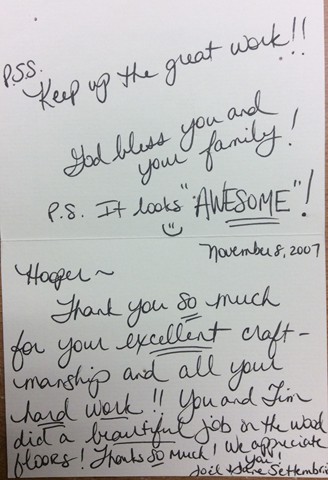 P.S.S.
Keep up the great work!!
God bless you and
your family!
P.S. It looks "AWESOME"!
November 8, 2007
Hooper~
Thank you so much
for your excellent craft-
manship and all your
hard work!! You and Jim
did a beautiful job on the wood
floors! Thanks so much! We appreciate
you!